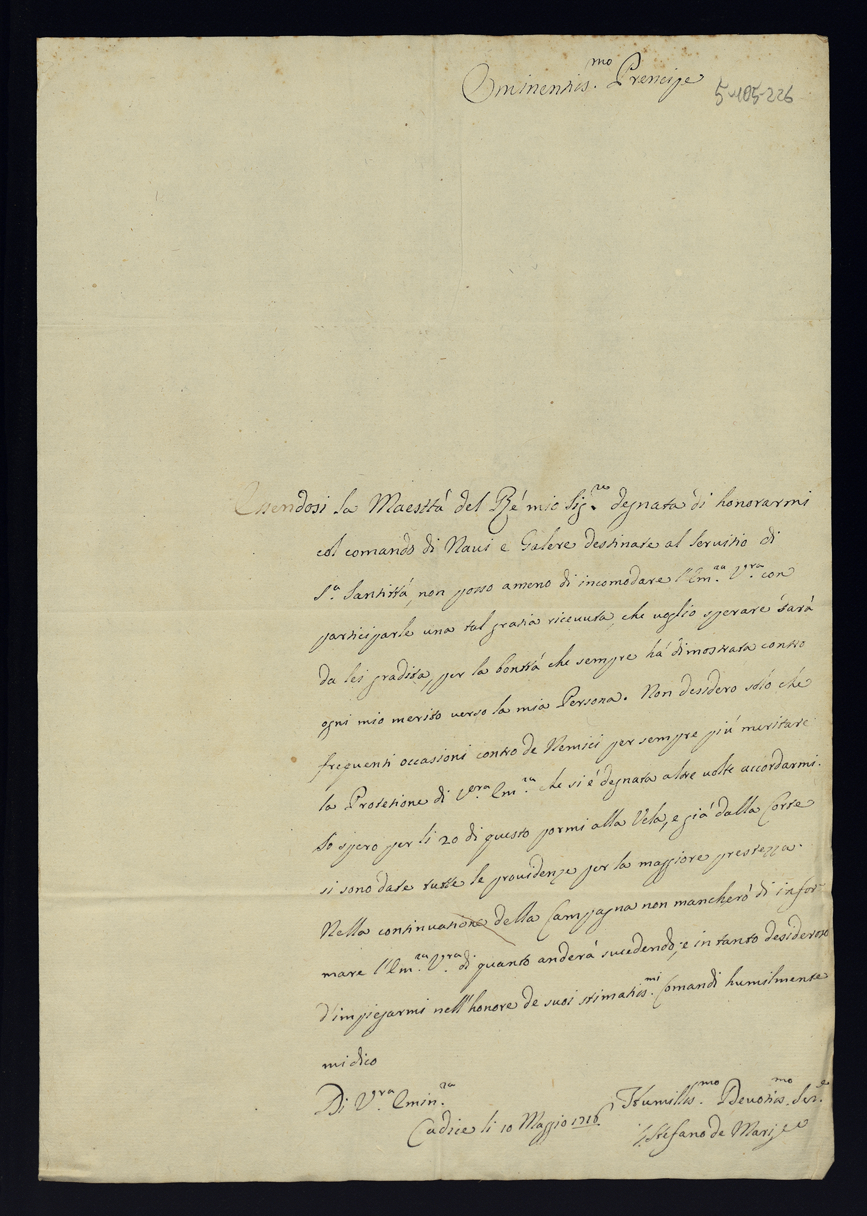 Eminentis.mo Prencipe
5-105-226
Essendosi la Maesttá del Ré mio Sig.re degnata di honorarmi
col comando di Naui e Galere destinate al seruitio di
S.a Santittá, non posso ameno di incomodare l'Em.za V.ra con
participarle una tal gratia riceuuta, che uoglio sperare sará
da lei gradita, per la bonttá che sempre há dimostrata contro
ogni mio merito uerso la mia Persona. Non desidero solo che
frequenti occasioni contro de Nemici per sempre piú meritare
la Protetione di V.era Em.za che si é degnata altre uolte accordarmi.
Io spero per li 20 di questo pormi alla Vela, e giá dalla Corte
si sono date tutte le prouidenze per la maggiore prestezza.
Nella continuatione della Campagna non mancheró di infor-
mare l'Em.za V.ra di quanto anderá sucedendo, e in tanto desideroso
d'impiegarmi nell'honore de suoi stimatis.mi Comandi humilmente
mi dico
Di V.ra Emin.za
Cadice li 10 Maggio 1716
Humilis.mo Deuotis.mo Ser.e
Stefano de Mari